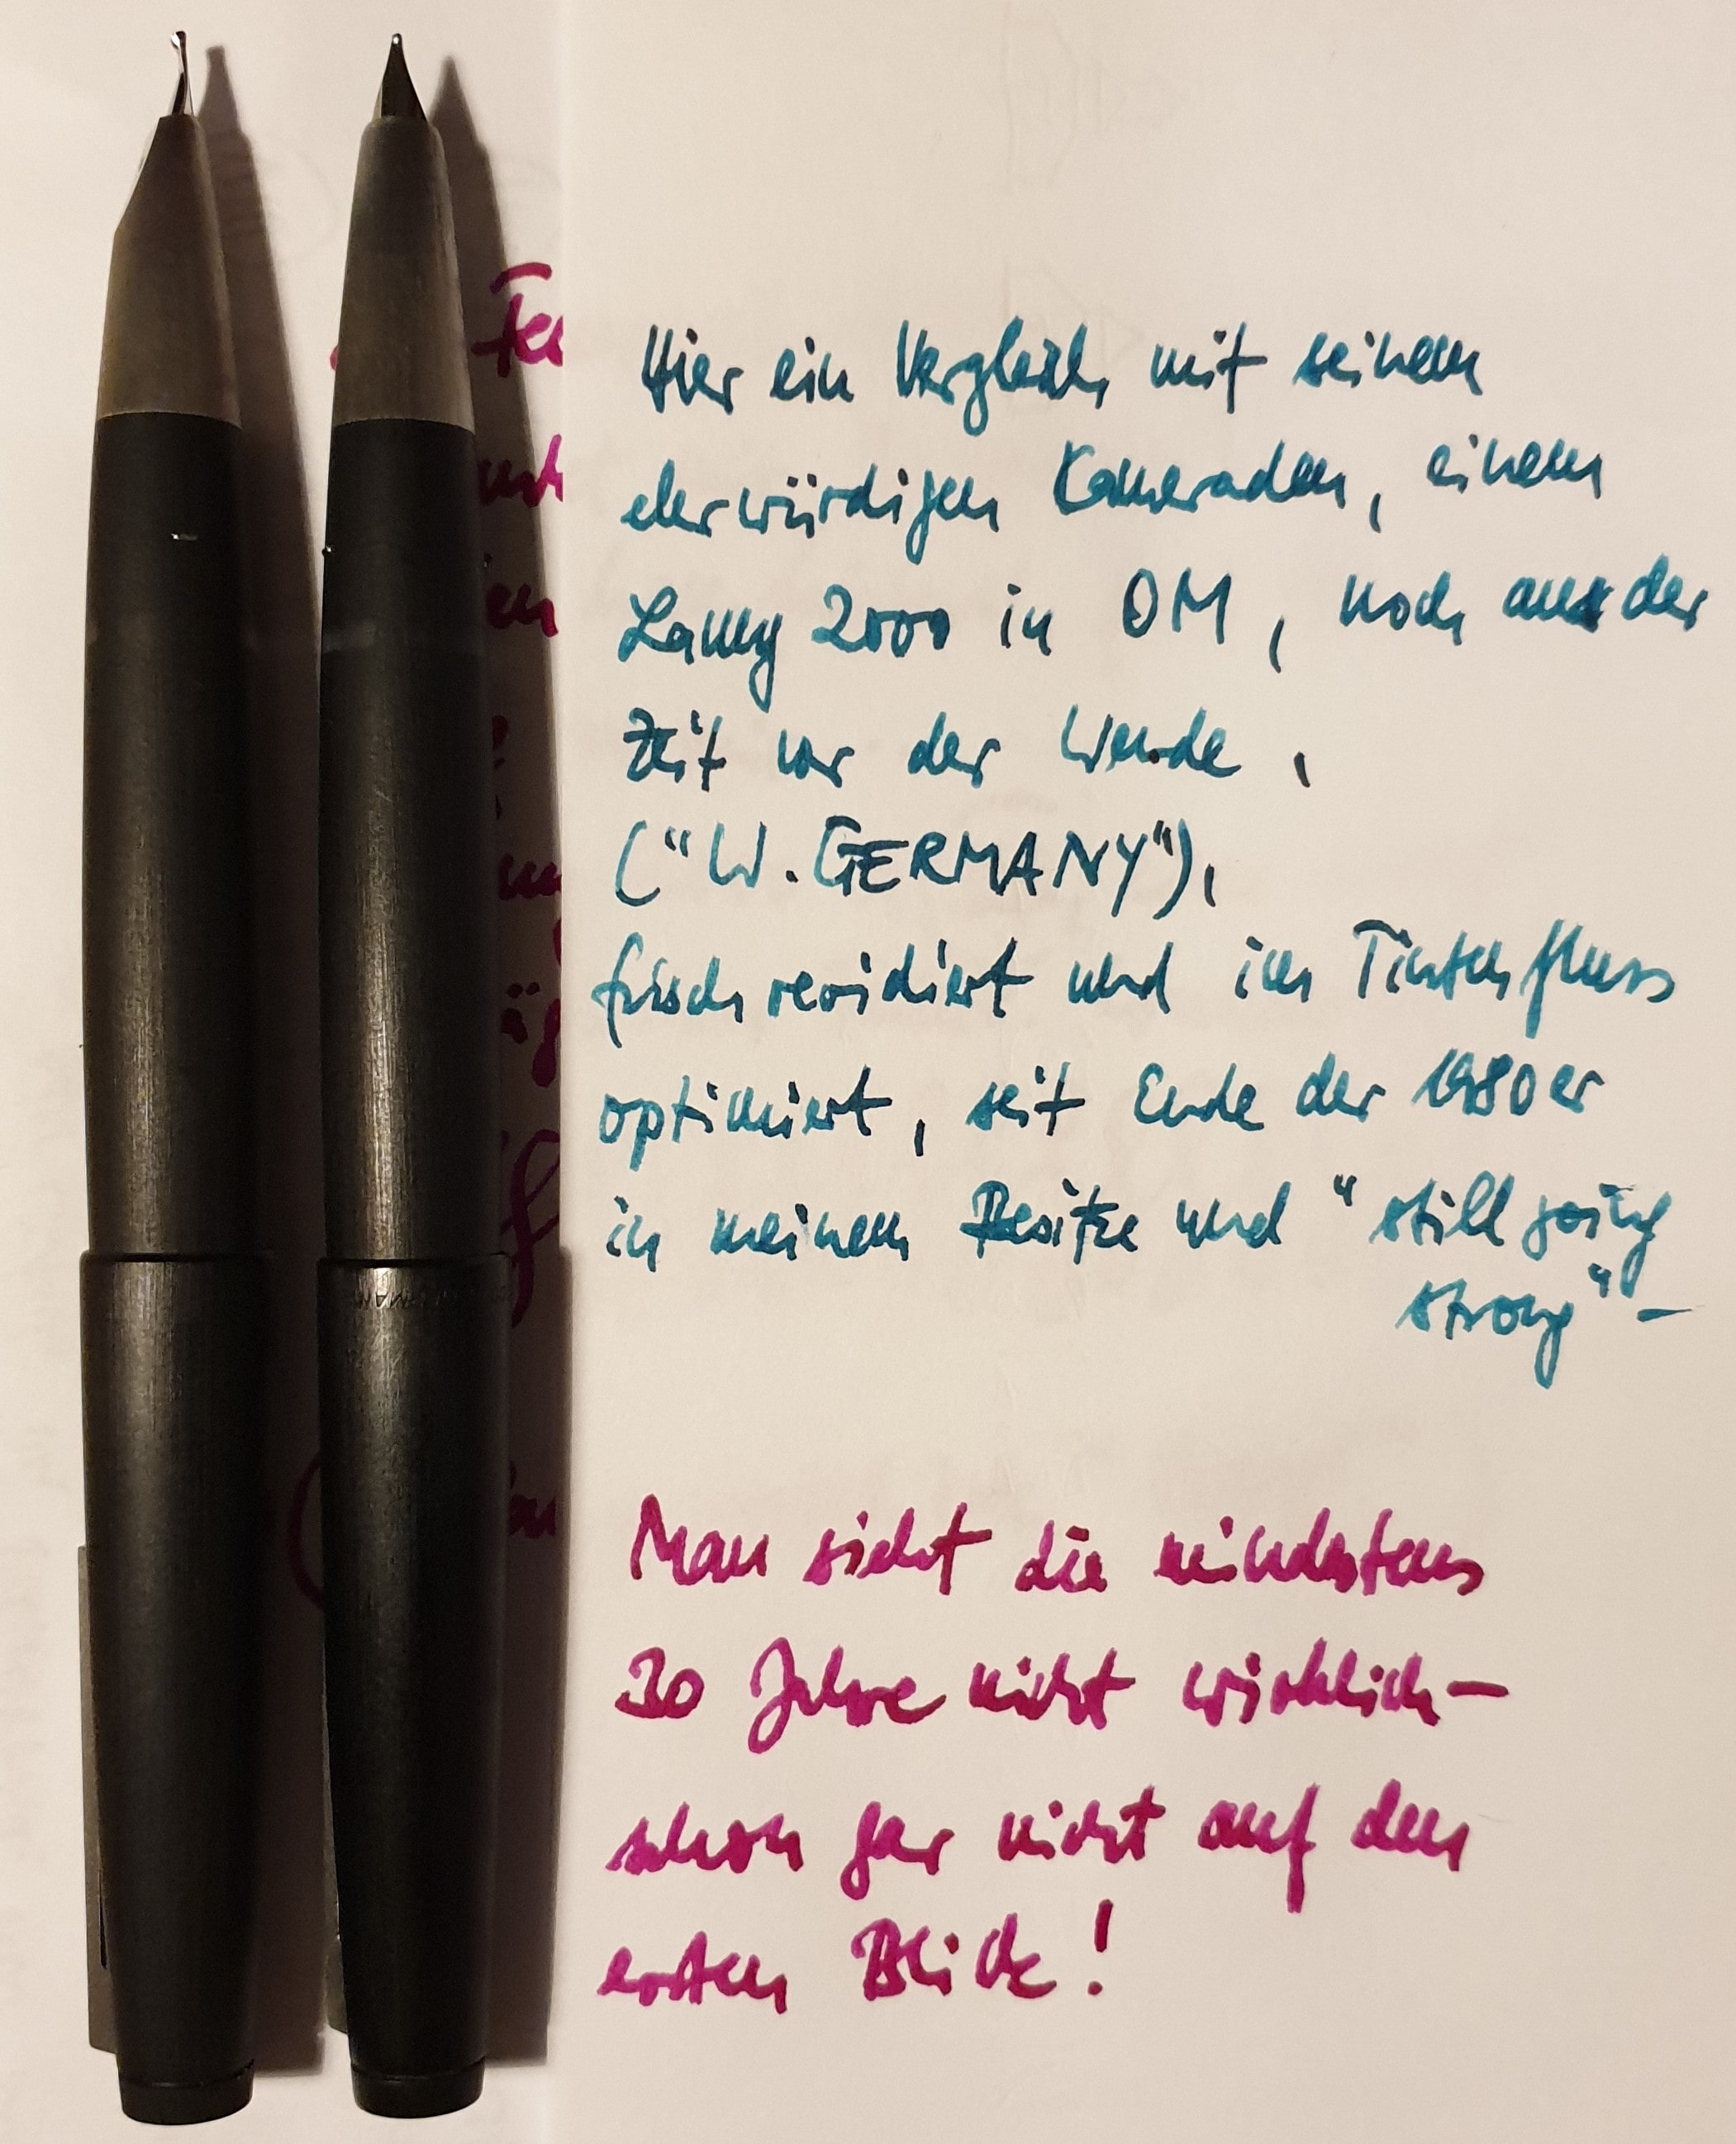 Hier ein Vergleich mit seinem
ehrwürdigen Kameraden, einem
Lamy 2000 in OM, noch aus der
Zeit vor der Wende,
("W. GERMANY"),
frisch revidiert und im Tintenfluss
optimiert, seit Ende der 1980er
in meinem Besitze und "still going
strong" –
Man sieht die mindestens
30 Jahre nicht wirklich –
schon gar nicht auf den
ersten Blick!